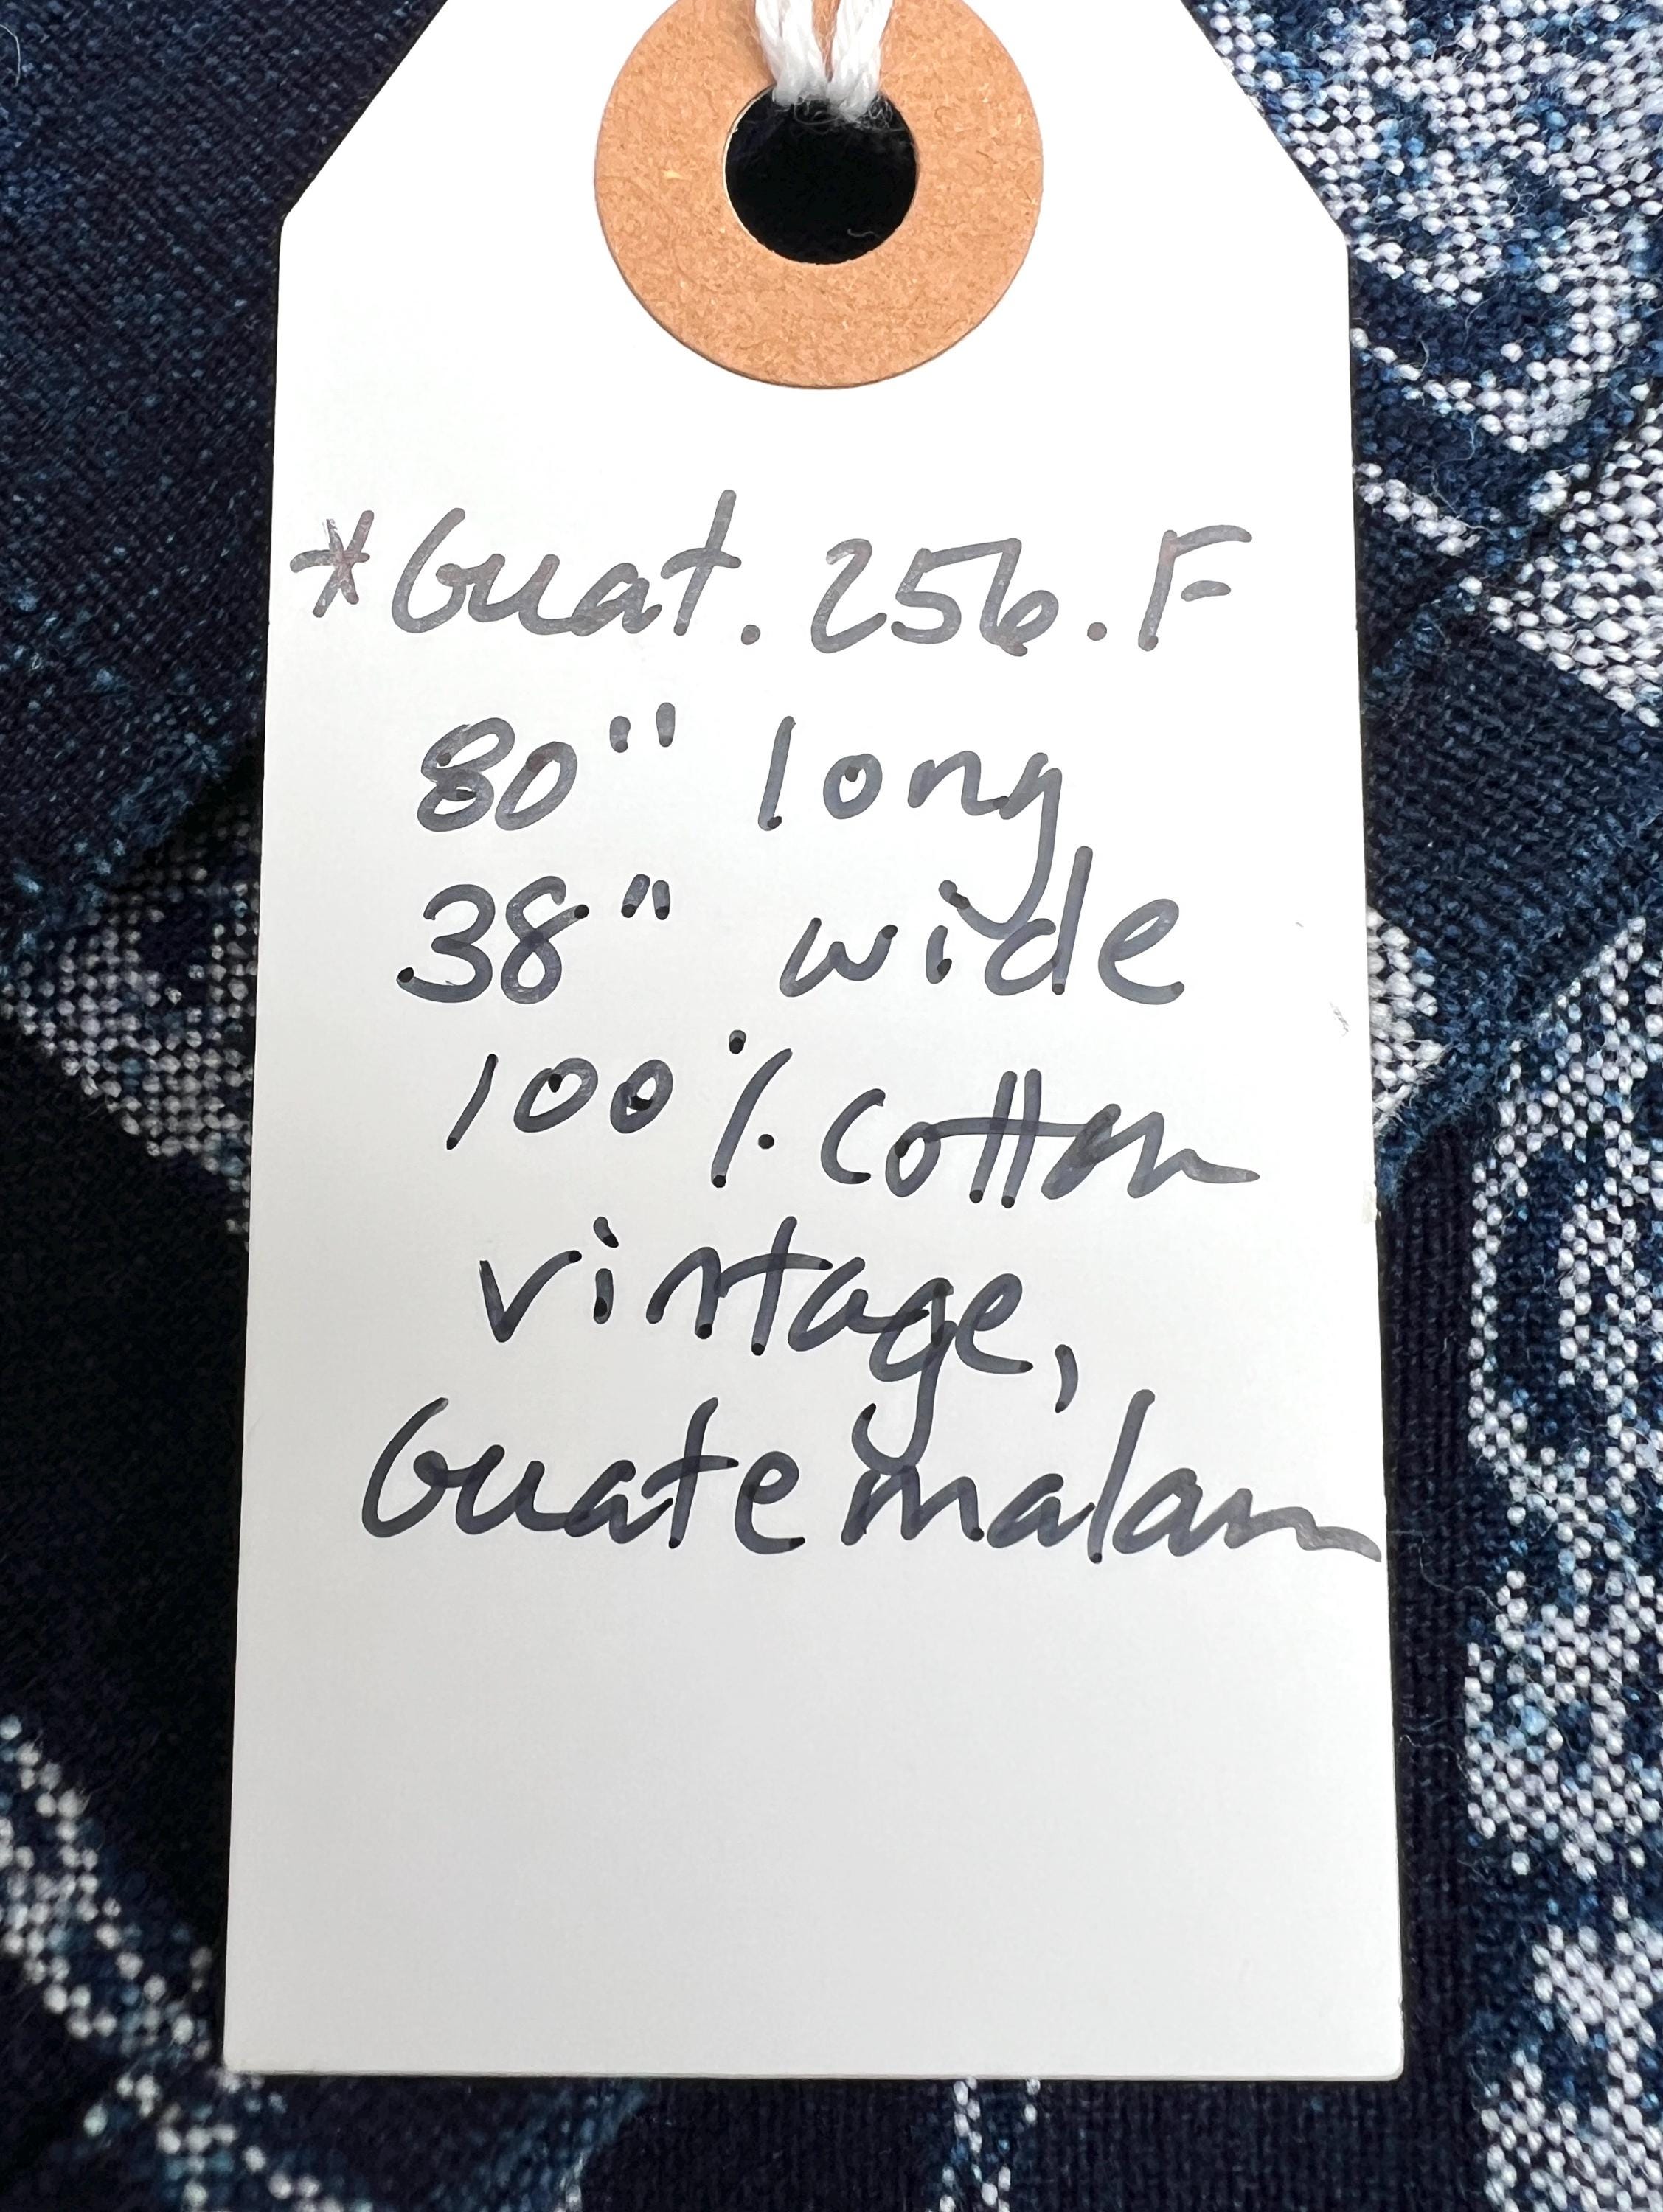 *Guat. 256.F
80" long
38" wide
100% cotton
vintage,
Guatemalan